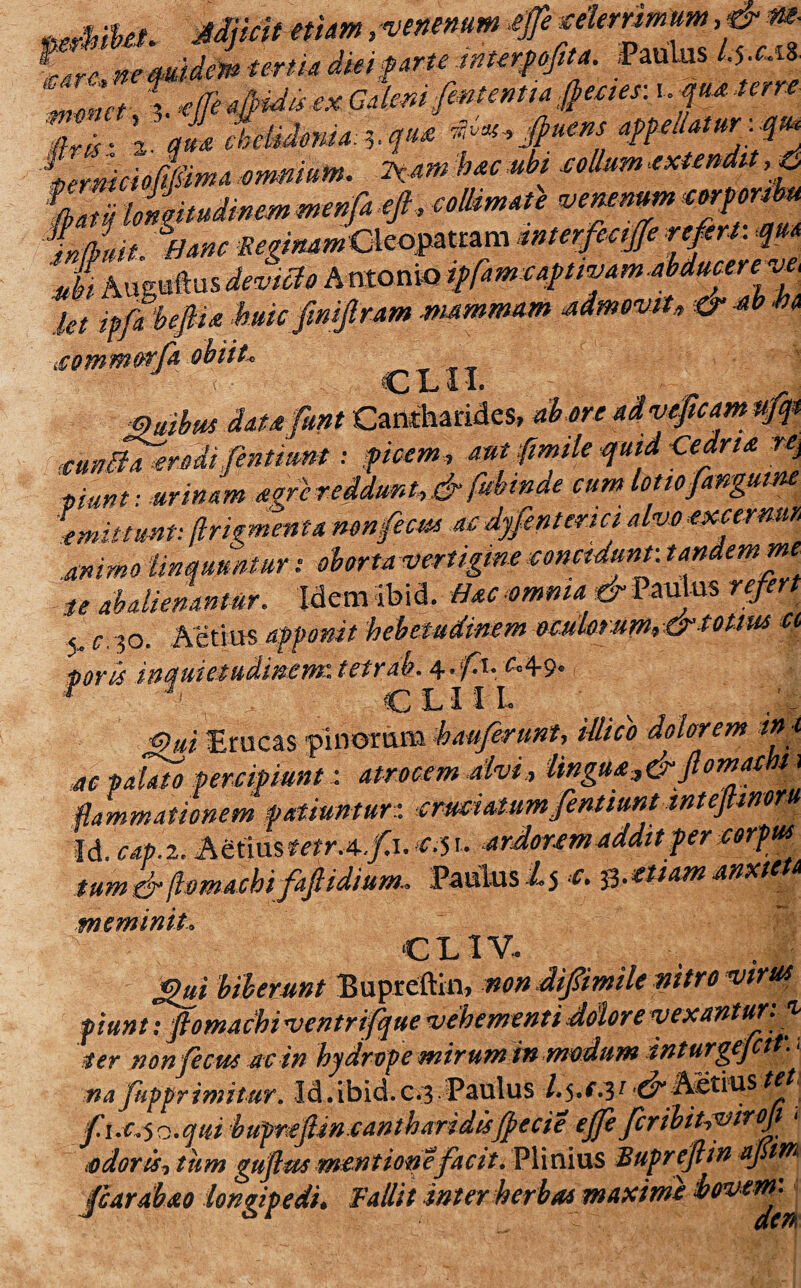 perhibet. Adjicit etiam, venenum esse celerrimum, & ne-
care, ne quidem tertia diei parte interposita. Paulus l.5.c.18.
monet, 3. esse aspidis ex Galeni sententia species: 1. qua terre
stris: 2. quæ chelidonia: 3. quæ spuens appellatur: quæ
perniciosissima omnium. Nam hæc ubi collum extendit, &
spatij longitudinem mensa est, collimatè venenum corporibu
inspuit. Hanc ReginamCleopatram interfecisse refert: qua
ubi Augustus devicto Antonio ipsam captivam abducere ve
let ipsa bestiæ huic sinistram mammam admovit, & ab ha
commorsa obiit.
CLII.
Quibus datæ sunt Cantharides, ab ore ad vesicam usq
cuncta erodi sentiunt: picem, aut simile quid Cedriæ re
piunt: urinam ægrè reddunt, & subinde cum lotio sanguine
emittunt: strigmenta non secus ac dysenterici alvo excernun
animo linquuntur: oborta vertigine concidunt: tandem me
te abalienantur. Idem ibid. Hæc omnia & Paulus refert
5. c. 30. Aëtius apponit hebetudinem oculorum, & totius co
poris inquietudinem: tetrab. 4. s.1. c.49.
CLIII.
Qui Erucas pinorum hauserunt, illicò dolorem in
ac palato percipiunt: atrocem alvi, linguæ, & stomachi
flammationem patiuntur: cruciatum sentiunt intestinoru
Id. cap.2. Aëtius tetr.4.s.1. c.51. ardorem addit per corpus
tum & stomachi fastidium. Paulus l.5 c. 33. etiam anxieta
meminit.
CLIV.
Qui biberunt Buprestin, non dißimile nitro virus
piunt: stomachi ventrisque vehementi dolore vexantur: v
ter non secus ac in hydrope mirum in modum inturgescit:
na supprimitur. Id. ibid. c.3. Paulus l.5.c.31 & Aëtius tet
s.1.c.50. qui buprestin cantharidis specie esse scribit, virosi
odoris, tùm gustus mentionè facit. Plinius Buprestin aßim
scarabæo longipedi. Fallit inter herbas maximè bovem:
den